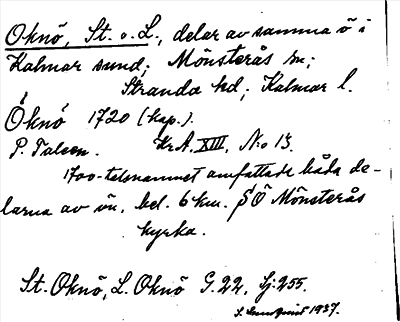 Oknö, St. o. L., delar av samma ö i
Kalmar sund; Mönsterås sn;
Stranda hd; Kalmar l.
Öknö 1720 (kap.).
Kr.A. XIII, No 13.
1700-talsnamnet omfattade båda de-
larna av ön, bel. 6 km. SÖ Mönsterås
kyrka.
St. Oknö, L. Oknö G. 22, Sj: 255.
1937.